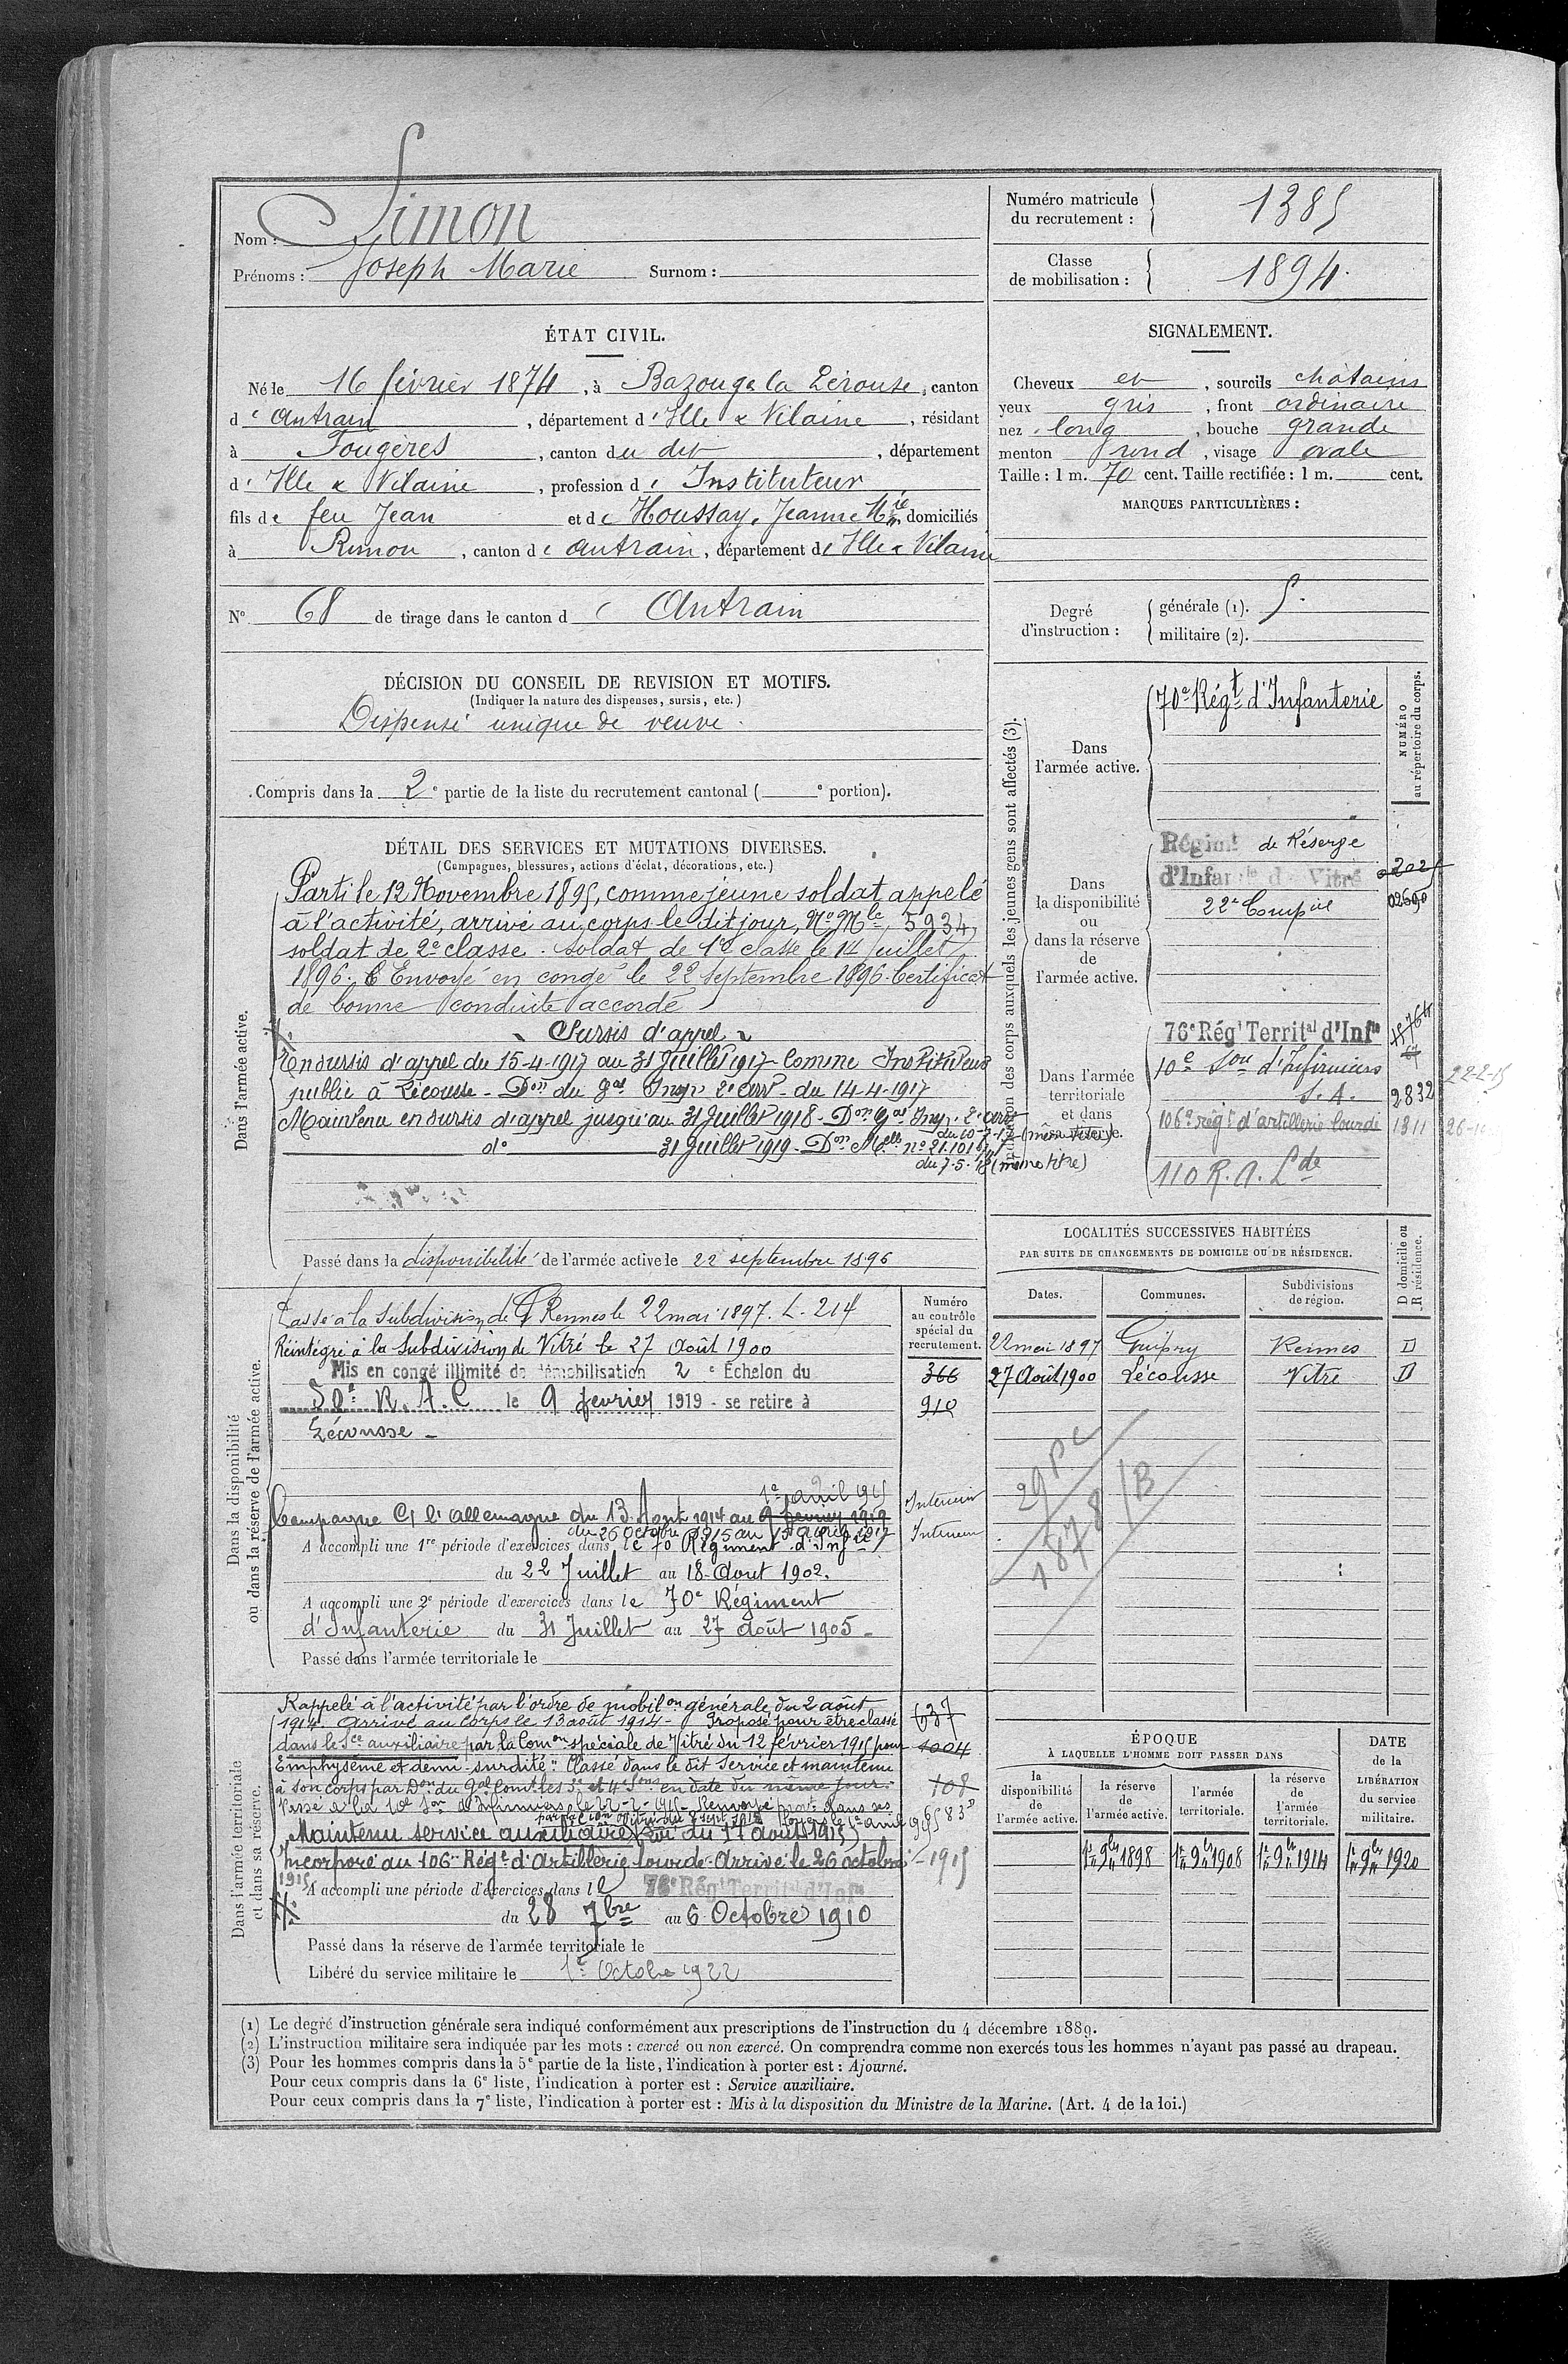 Nom : Simon
Prénoms : Joseph Marie Surnom :
Numéro matricule du recrutement : 1385
Classe de mobilisation : 1894.
ÉTAT CIVIL.
Né le 16 février 1874, à Bazouge la Pérouse, canton
de Antrain, département d'Ille & Vilaine, résidant
à Fougères, canton du dit, département
d'Ille & Vilaine, profession d'Instituteur
fils de feu Jean et de Houssay, Jeanne Mie, domiciliés
à Rimou, canton de Antrain, département d'Ille & Vilaine
N° 68 de tirage dans le canton de Antrain
SIGNALEMENT.
Cheveux et, sourcils châtains
yeux gris, front ordinaire
nez long, bouche grande
menton rond, visage ovale
Taille : 1 m. 70 cent. Taille rectifiée : 1 m. cent.
MARQUES PARTICULIÈRES :
Degré d'instruction :
générale (1). 5.
militaire (2).
DÉCISION DU CONSEIL DE REVISION ET MOTIFS.
(Indiquer la nature des dispenses, sursis, etc.)
Dispensé unique de veuve.
Compris dans la 2e partie de la liste du recrutement cantonal ( e portion).
DÉTAIL DES SERVICES ET MUTATIONS DIVERSES.
(Campagnes, blessures, actions d'éclat, décorations, etc.)
Dans l'armée active.
Parti le 12 Novembre 1895, comme jeune soldat appelé
à l'activité, arrivé au corps le dit jour, No Mle 5934,
soldat de 2e classe. Soldat de 1re classe le 14 juillet
1896. Envoyé en congé le 22 septembre 1896. Certificat
de bonne conduite accordé
Sursis d'appel
En sursis d'appel du 15-4-1917 au 31 Juillet 1917 - Comme Instituteur
public à Lécousse - Don du Gal Insp. 2e arrt - du 14-4-1917
Maintenu en sursis d'appel jusqu'au 31 Juillet 1918 - Don Gal Insp. 2e arrt
du 10-7-17 (même titre)
do 31 Juillet 1919 - Don Melle no 21.101
du 7.5.18 (même titre)
Passé dans la disponibilité de l'armée active le 22 septembre 1896
des corps auxquels les jeunes gens sont affectés (3).
NUMÉRO au répertoire du corps.
Dans l'armée active.
70e Régt d'Infanterie
Dans la disponibilité ou dans la réserve de l'armée active.
Régimt de Réserve
d'Infanterie de Vitré
22e Compie
02690
Dans l'armée territoriale et dans sa réserve.
76e Régt Territal d'Infie
10e Son d'Infirmiers
S.A. 2832 22-2-15
106e régt d'artillerie lourde 1311
110 R.A. Lde
LOCALITÉS SUCCESSIVES HABITÉES
PAR SUITE DE CHANGEMENTS DE DOMICILE OU DE RÉSIDENCE.
Dates. Communes. Subdivisions de région. D domicile ou R résidence.
22 mai 1897 Guipry Rennes D
27 Août 1900 Lécousse Vitré D
29 PC
1878/B
Dans la disponibilité ou dans la réserve de l'armée active.
Numéro au contrôle spécial du recrutement.
Passé à la Subdivision de Rennes le 22 mai 1897. L. 214
Réintégré à la Subdivision de Vitré le 27 Août 1900
Mis en congé illimité de démobilisation 2e Échelon du
50e R.A.C. le 9 fevrier 1919 - se retire à
Lécousse -
366
910
1er avril 915
Campagne C/ l'allemagne du 13 Aout 1914 au 9 fevrier 1919 Interieur
du 26 Octobre 1915 au 15 avril 1917 Interieur
A accompli une 1re période d'exercices dans le 70 Régiment d'Infie
du 22 Juillet au 18 Aout 1902.
A accompli une 2e période d'exercices dans le 70e Régiment
d'Infanterie du 31 Juillet au 27 août 1905 -
Passé dans l'armée territoriale le
Dans l'armée territoriale et dans sa réserve.
Rappelé à l'activité par l'ordre de mobilon générale du 2 août
1914. Arrivé au Corps le 13 août 1914 - Proposé pour être classé
dans le Sce auxiliaire par la Comon spéciale de Vitré du 12 février 1915 pour
"Emphysème et demi-surdité". Classé dans le dit Service et maintenu
à son corps par Don du Gal Comt les 3e et 4e Sons en date du même jour.
Passé à la 10e Son d'Infirmiers le 22-2-1915 - Renvoyé provt dans ses
foyers le 1er avril 915
Maintenu service auxiliaire du 17 août 1915
Incorporé au 106e Régt d'Artillerie lourde. Arrivé le 26 octobre 1915
637
1004
108
A accompli une période d'exercices dans le 76e Régt Territal d'Infie
du 28 7bre au 6 Octobre 1910
Passé dans la réserve de l'armée territoriale le
Libéré du service militaire le 1er Octobre 1922
ÉPOQUE
À LAQUELLE L'HOMME DOIT PASSER DANS
la disponibilité de l'armée active.
la réserve de l'armée active.
l'armée territoriale.
la réserve de l'armée territoriale.
DATE de la LIBÉRATION du service militaire.
1er 9bre 1898 1er 9bre 1908 1er 9bre 1914 1er 9bre 1920
(1) Le degré d'instruction générale sera indiqué conformément aux prescriptions de l'instruction du 4 décembre 1889.
(2) L'instruction militaire sera indiquée par les mots : exercé ou non exercé. On comprendra comme non exercés tous les hommes n'ayant pas passé au drapeau.
(3) Pour les hommes compris dans la 5e partie de la liste, l'indication à porter est : Ajourné.
Pour ceux compris dans la 6e liste, l'indication à porter est : Service auxiliaire.
Pour ceux compris dans la 7e liste, l'indication à porter est : Mis à la disposition du Ministre de la Marine. (Art. 4 de la loi.)